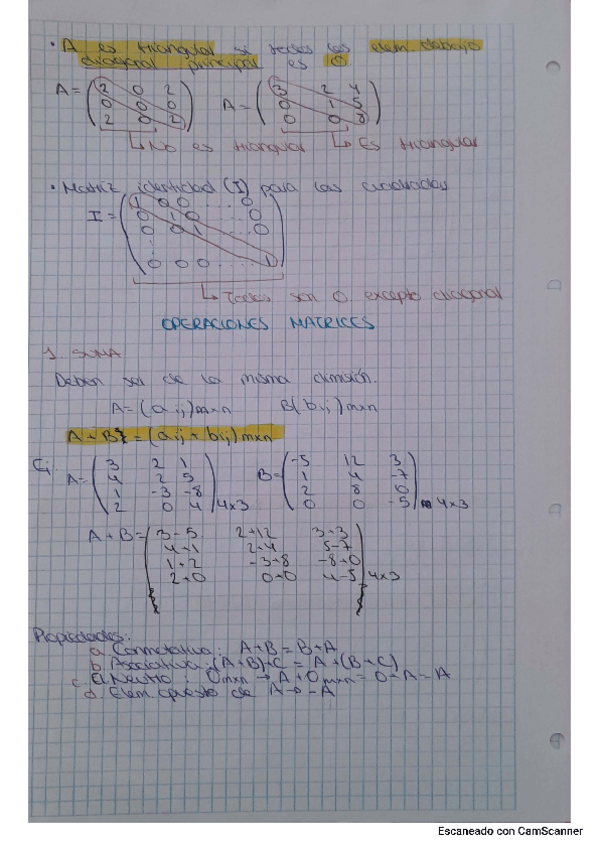 · A es triangular si todos los elem. debajo
diagonal principal es 0.
A = ( 2 0 2 A = ( 3 2 4
0 0 0 0 1 5
2 0 2 ) 0 0 8 )
↳ No es triangular ↳ Es triangular
· Matriz identidad (I) para las cuadradas
I = ( 1 0 0 ... 0
0 1 0 ... 0
0 0 1 ... 0
⋮
0 0 0 ... 1 )
↳ Todos son 0 excepto diagonal
OPERACIONES MATRICES
1. SUMA
Deben ser de la misma dimensión.
A = (aij)mxn B(bij)mxn
A + B = (aij + bij)mxn
Ej: A = ( 3 2 1 B = ( -5 12 3
4 2 5 1 4 -7
1 -3 -8 2 8 0
2 0 4 ) 4x3 0 0 -5 ) 4x3
A + B = ( 3-5 2+12 3+3
4+1 2+4 5-7
1+2 -3+8 -8+0
2+0 0+0 4-5 ) 4x3
Propiedades:
a. Conmutativa: A+B = B+A
b. Asociativa: (A+B)+C = A+(B+C)
c. El. Neutro: 0mxn → A+0mxn = 0+A = A
d. Elem. opuesto de A → -A
Escaneado con CamScanner